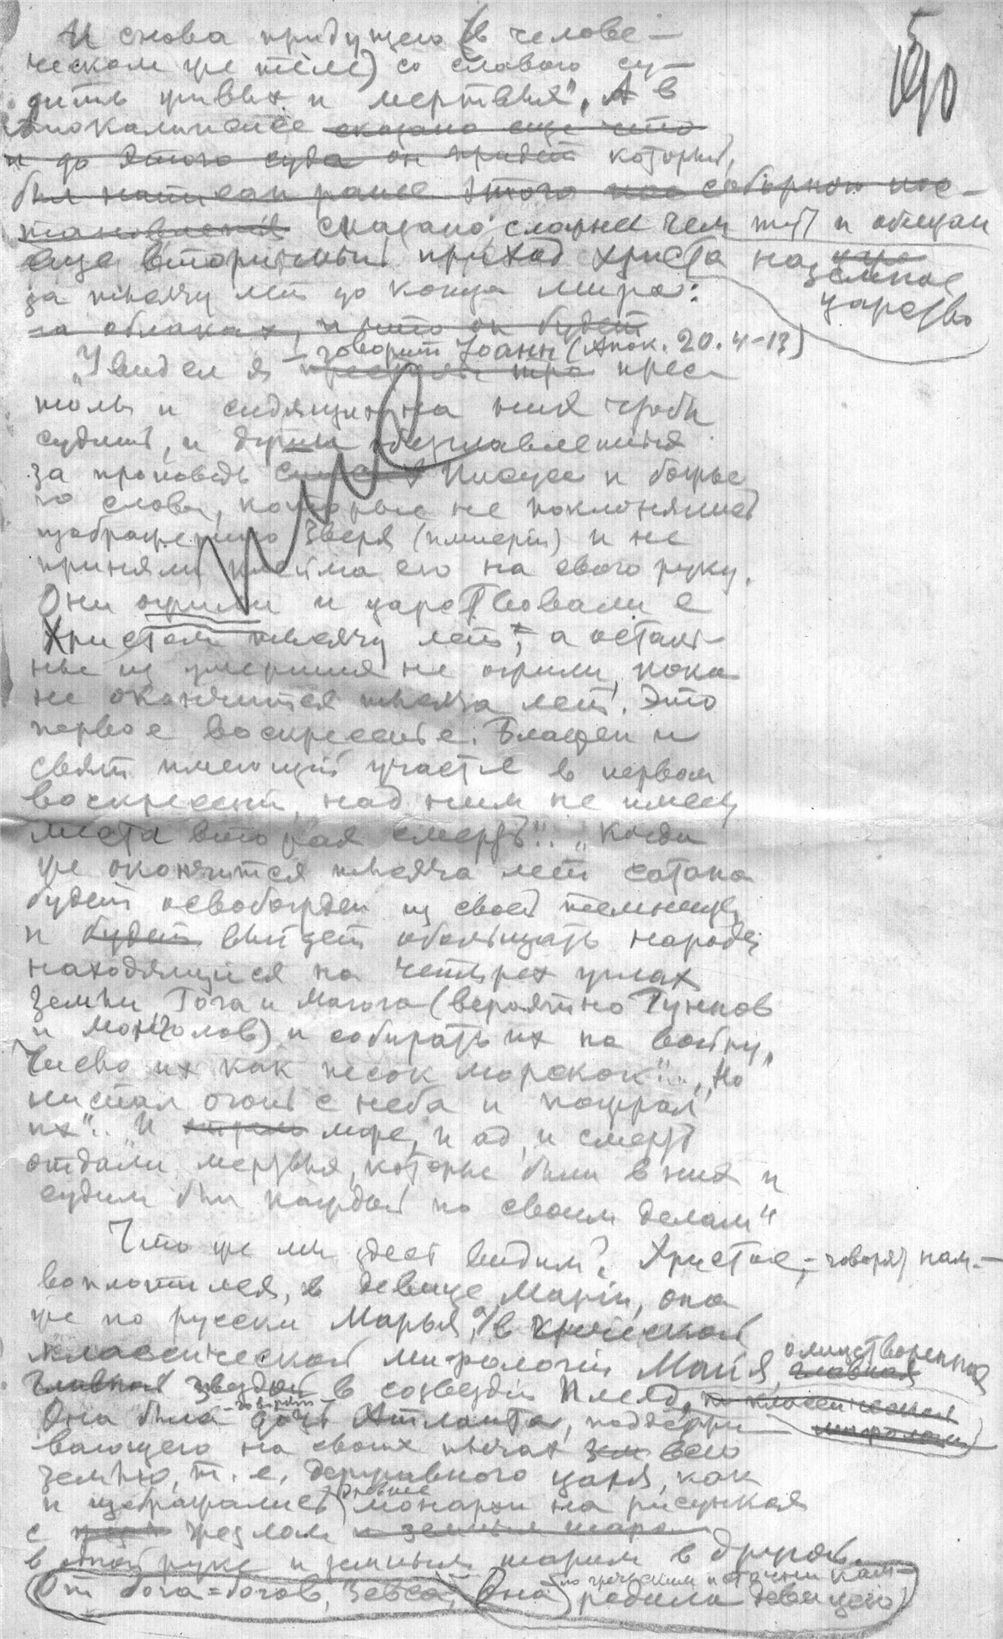 И снова придущего (в челове-
ческом же теле) со славою су-
дить живых и мертвых". А в
Апокалипсисе сказано еще что
и до этого суда он придет который,
был написан ранее этого собор­ного пос-
тановления сказано сложнее чем тут и обещан
еще вторичный приход Христа на земное
царство
за тысячу лет до конца мира:
на облаках, и что он будет
— говорит Иоанн (Апок. 20. 4-13)
"Увидел я прес-
толы и сидящих на них чтобы
судить, и души обезглавленных
за проповедь Иисуса и божье-
го слова, которые не поклонялись
изображению Зверя (империи) и не
приняли клейма его на свою руку.
Они ожили и царствовали с
Христом тысячу лет, а осталь-
ные из умерших не ожили, пока
не окончится тысяча лет. Это
первое воскресенье. Блажен и
свят имеющий участие в первом
воскресении, над ним не имеет
места вторая смерть".. "Когда
же окончится тысяча лет сатана
будет освобожден из своей темницы
и будет выйдет обольщать народы
находящиеся на четырех углах
земли Гога и Магога (вероятно Гуннов
и монголов) и собирать их на войну,
Число их как песок морской"... "Но
ниспал огонь с неба и пожрал
их".. "И море, и ад, и смерть
отдали мертвых, которые были в них и
судим был каждый по своим делам"
Что же мы здесь видим? Христос, - говорят нам. -
воплотился, в девице Марии, она
же по русски Марья, а в греческой
классической мифологии Майя, олицетворенная
главная
главная звездой в созвездии Плеяд, по классической
мифологии
Она была - говорят - дочь Атланта, поддержи-
вающего на своих плечах зем всю
землю, т. е. державного царя, как
и изображались древние монархи на рисунках
с жезлом и земным шаром
в одной руке и земным шаром в другой.
От бога = богов, Зевса, Она (по греческим нам) родила девицею